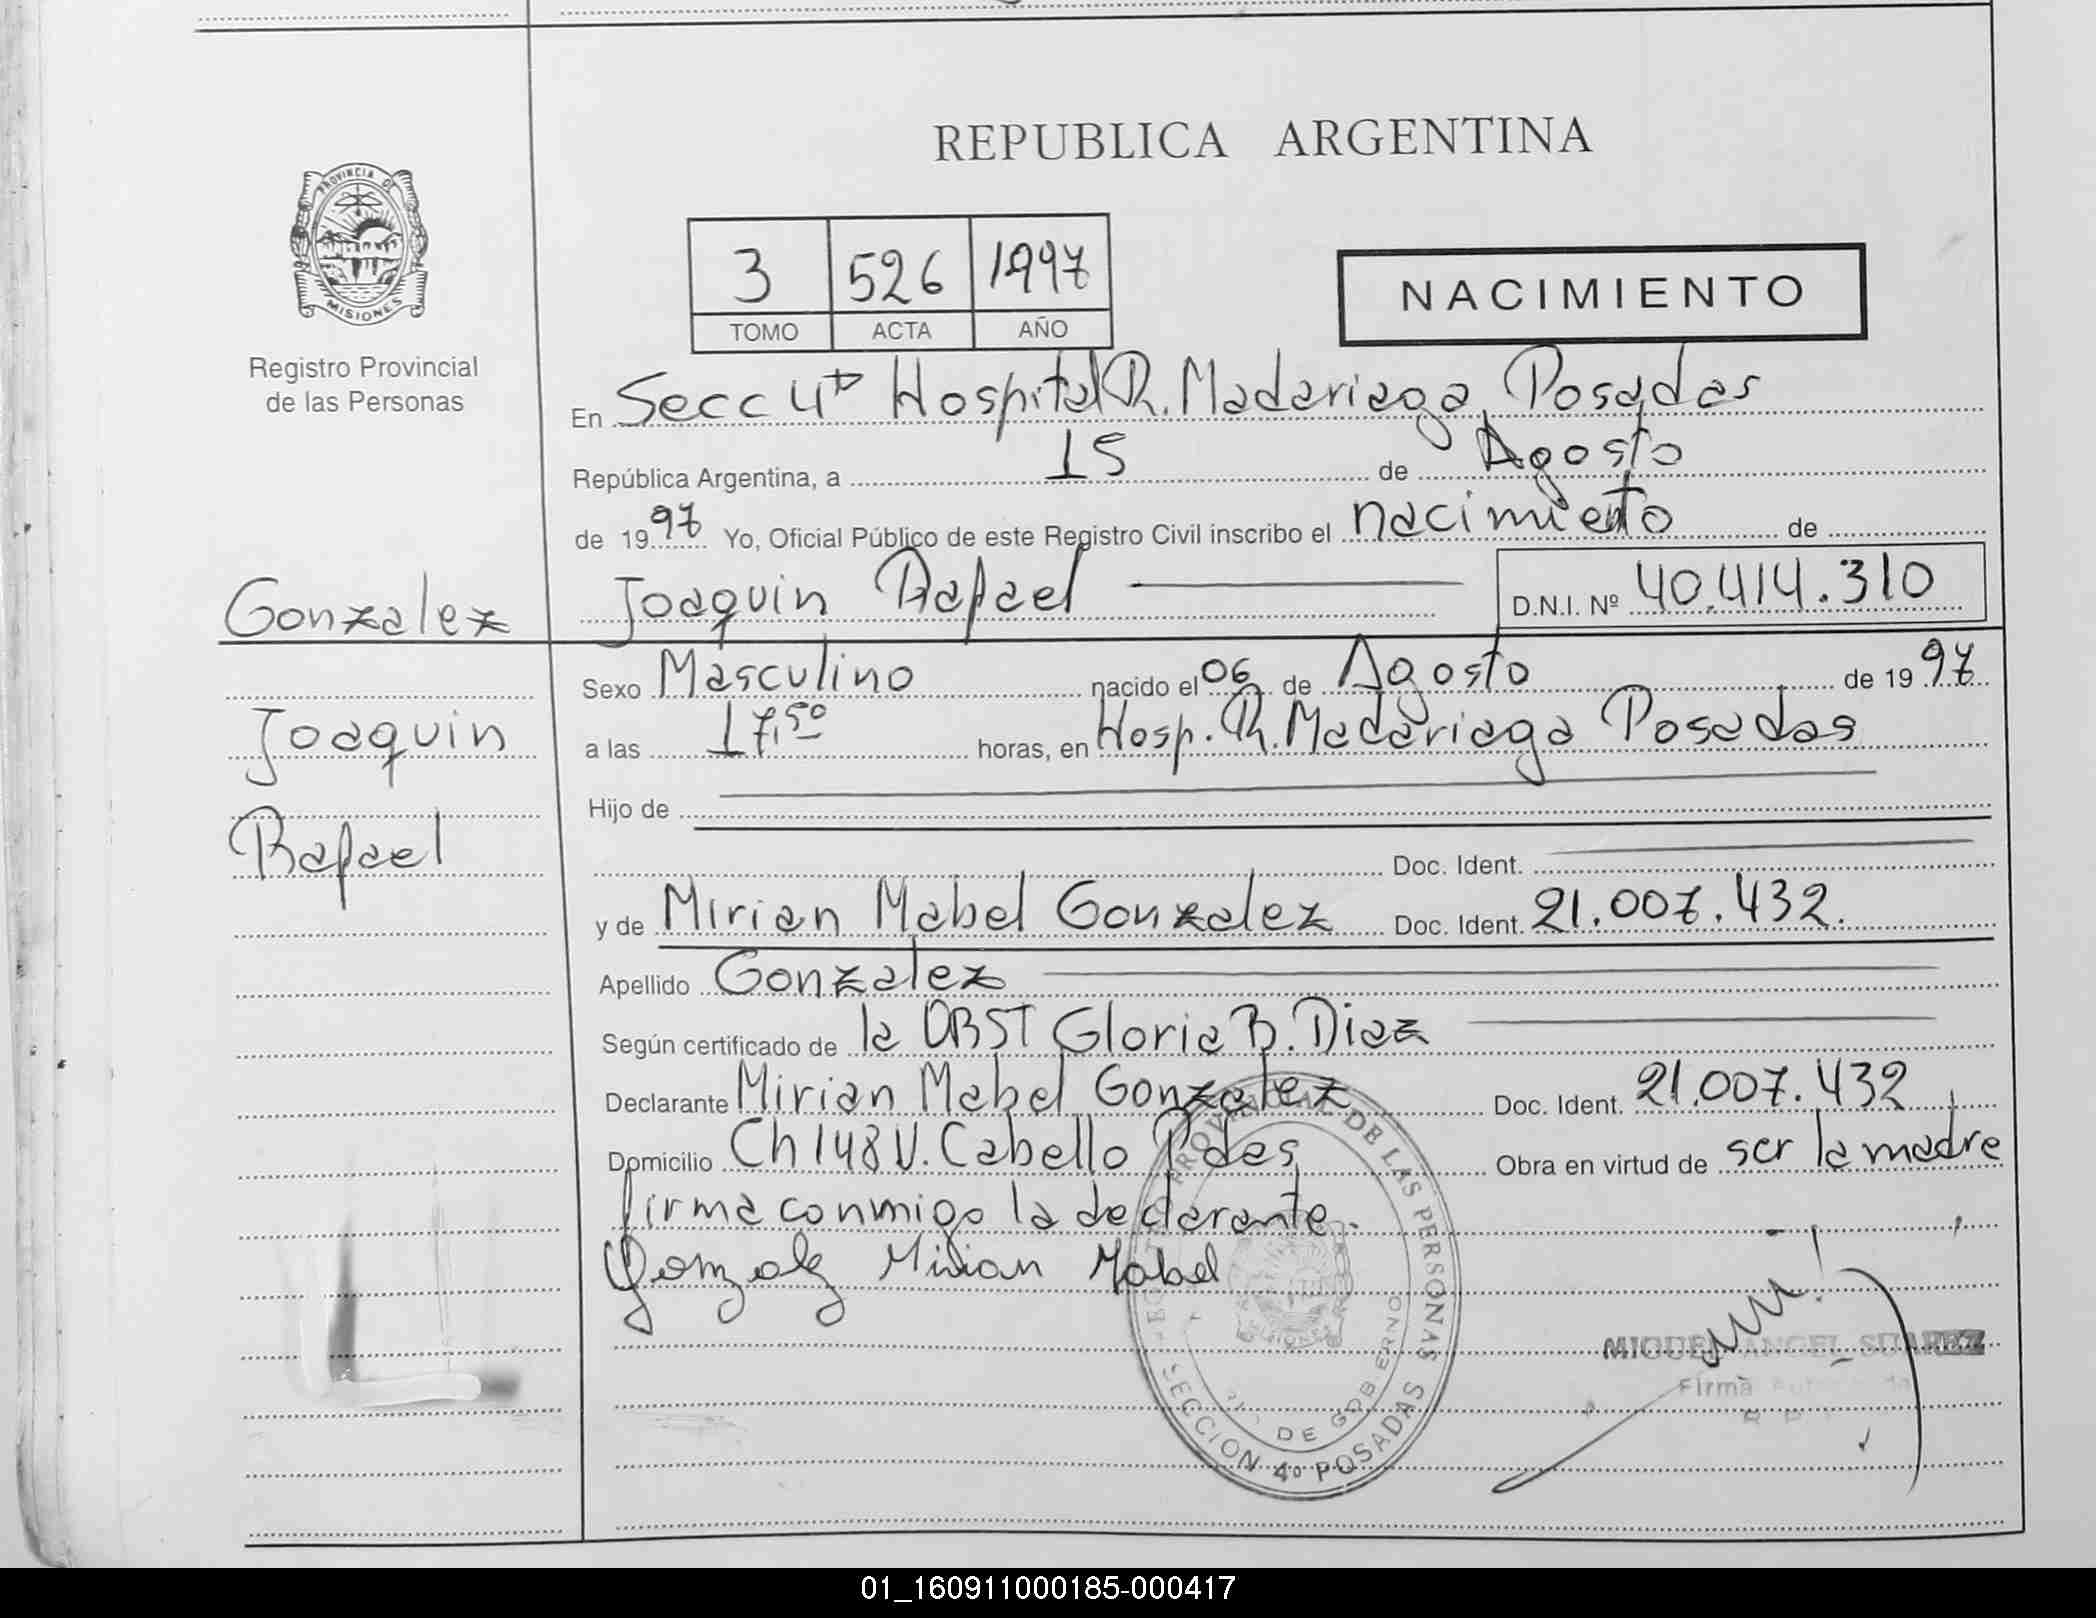 REPUBLICA ARGENTINA
PROVINCIA DE
MISIONES
Registro Provincial
de las Personas
3 526 1997
TOMO ACTA AÑO
NACIMIENTO
En Secc 4ª Hospital R. Madariaga Posadas
República Argentina, a 15 de Agosto
de 1997 Yo, Oficial Público de este Registro Civil inscribo el nacimiento de
Gonzalez
Joaquin Rafael D.N.I. Nº 40.414.310
Sexo Masculino nacido el 06 de Agosto de 1997
Joaquin
a las 17,50 horas, en Hosp. R. Madariaga Posadas
Hijo de
Rafael
Doc. Ident.
y de Mirian Mabel Gonzalez Doc. Ident. 21.007.432.
Apellido Gonzalez
Según certificado de la OBST Gloria B. Diaz
Declarante Mirian Mabel Gonzalez Doc. Ident. 21.007.432
Domicilio Ch 148 V. Cabello Pdas Obra en virtud de ser la madre
firma conmigo la declarante.
Gonzalez Mirian Mabel
PROVINCIAL DE LAS PERSONAS
DE GOBIERNO
SECCION 4º POSADAS
MIGUEL ANGEL SUAREZ
Firma
01_160911000185-000417